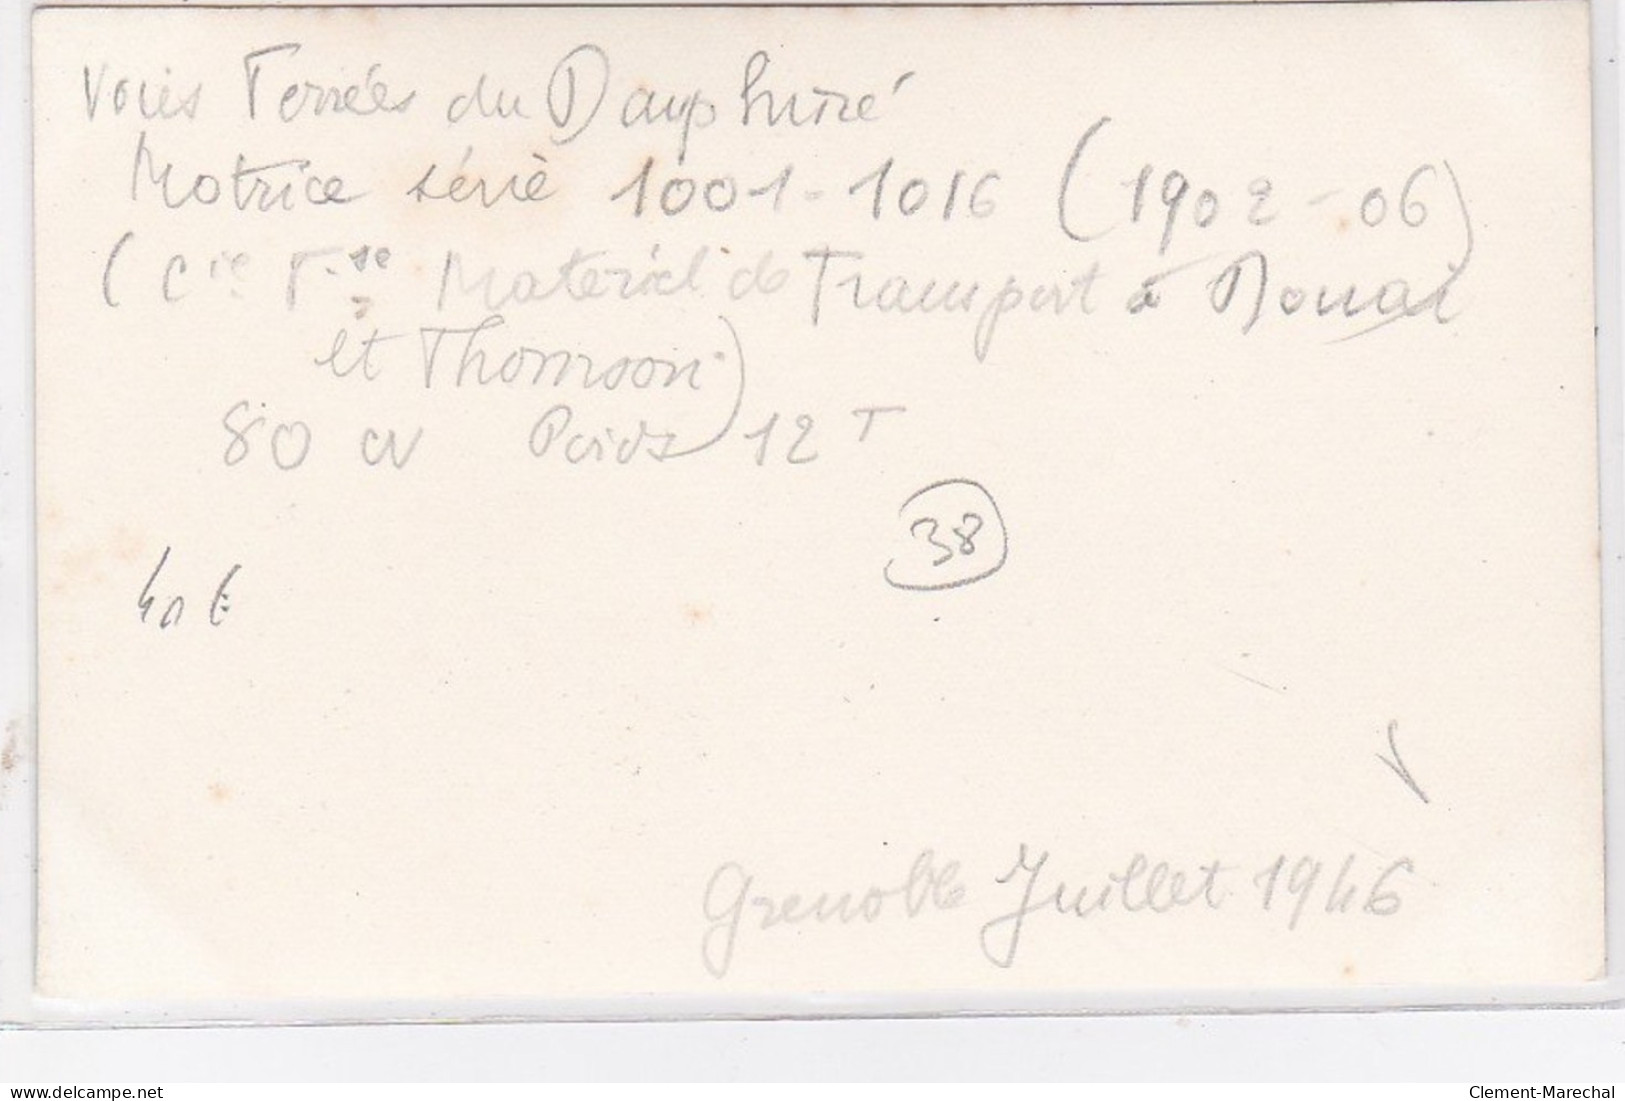 Voies Ferrées du Dauphiné
Motrice série 1001-1016 (1902-06)
(Cie Fse Matériel de Transport à Douai
et Thomson)
80 cv Poids 12T
38
40 €
Grenoble Juillet 1946
delcampe.net
Clement-Marechal